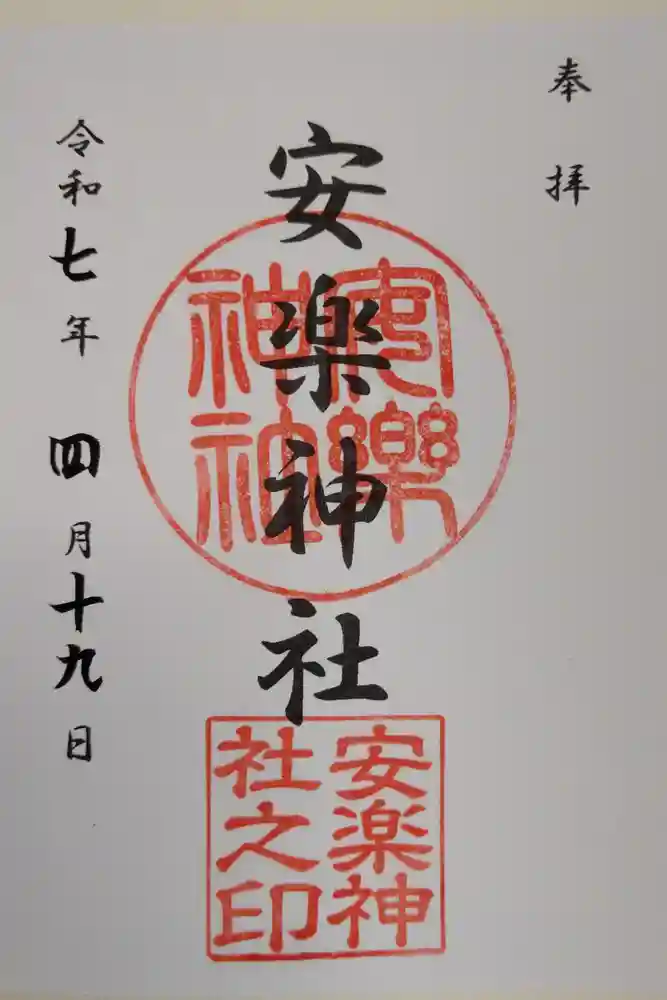 奉拝
安楽神社
安樂
神社
安楽神
社之印
令和七年四月十九日